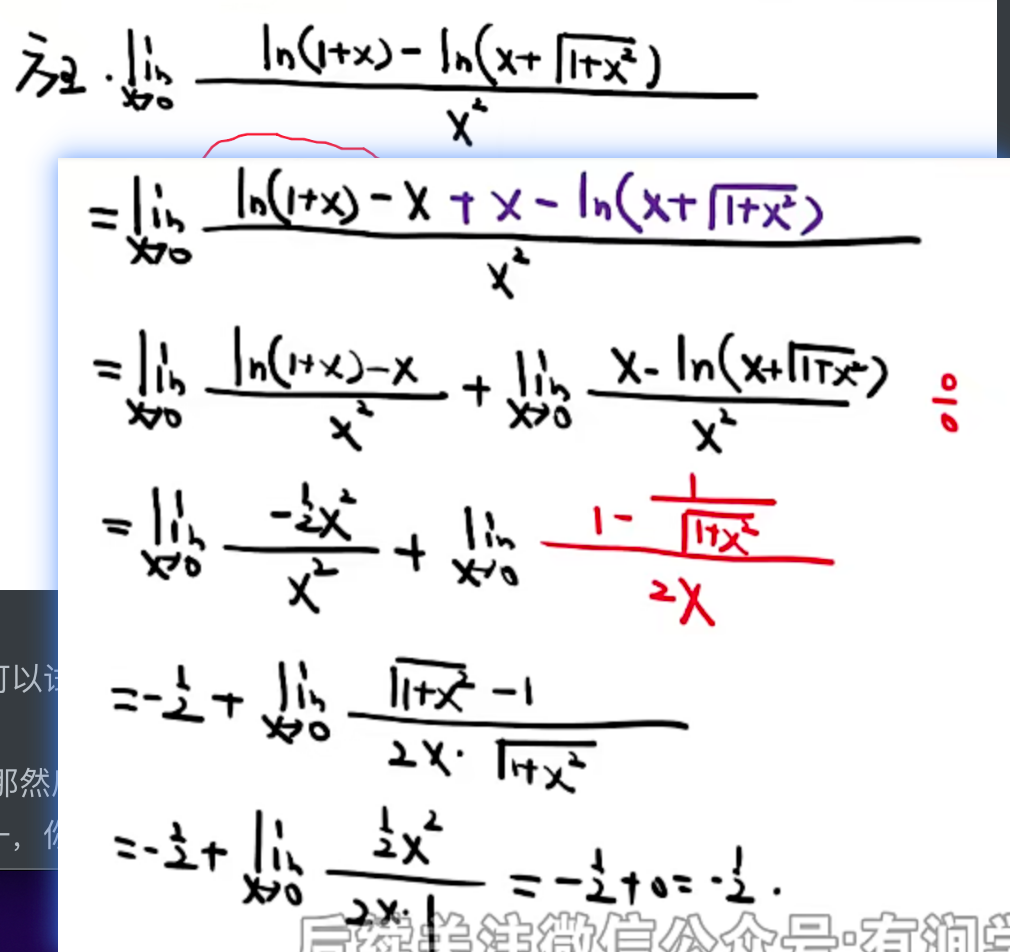 方法2. lim x→0 (ln(1+x) - ln(x+√(1+x²))) / x²
= lim x→0 (ln(1+x) - x + x - ln(x+√(1+x²))) / x²
= lim x→0 (ln(1+x) - x) / x² + lim x→0 (x - ln(x+√(1+x²))) / x² 0/0
= lim x→0 (-1/2 x²) / x² + lim x→0 (1 - 1/√(1+x²)) / 2x
可以
= -1/2 + lim x→0 (√(1+x²) - 1) / (2x·√(1+x²))
那然
= -1/2 + lim x→0 (1/2 x²) / (2x·1) = -1/2 + 0 = -1/2.
后续关注微信公众号:有润学